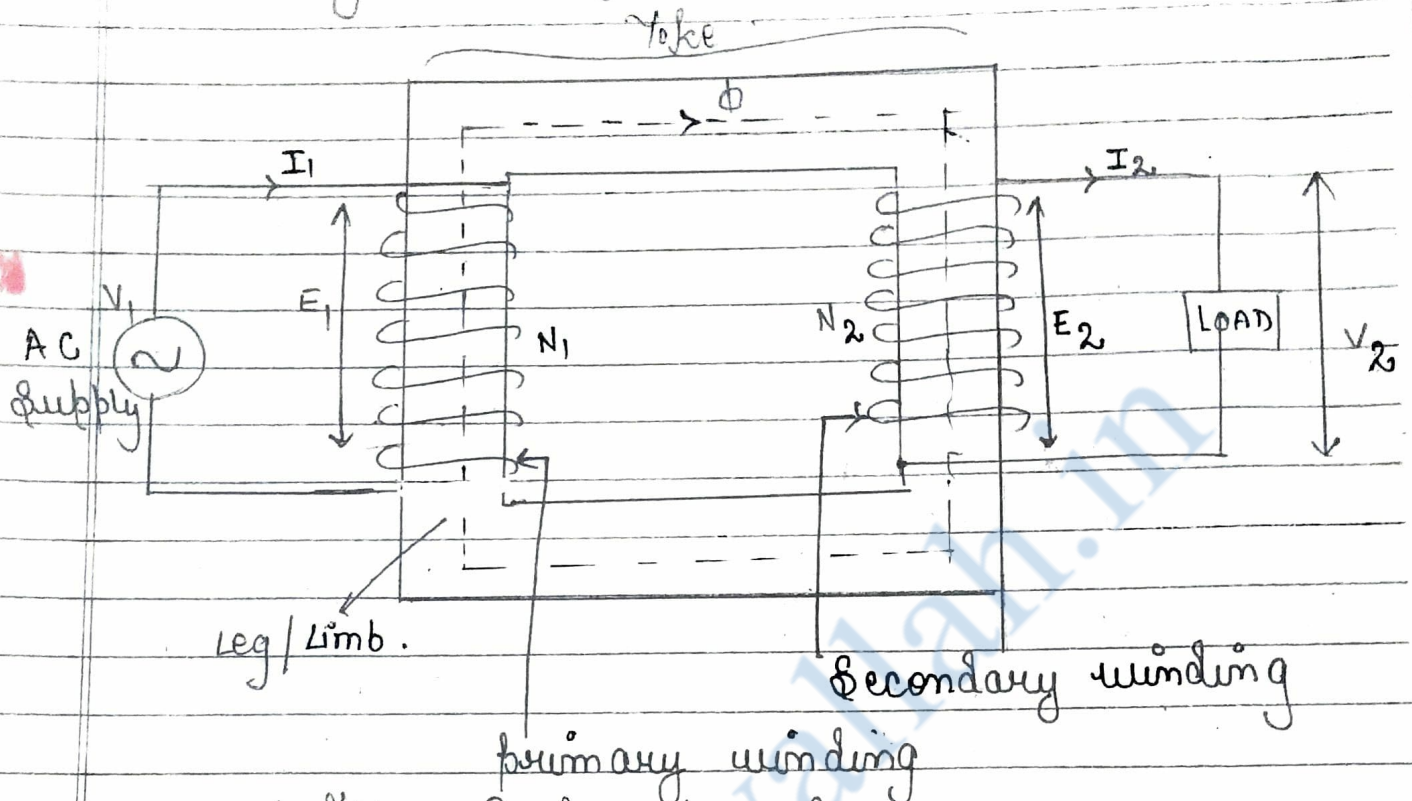 Yoke
Φ
I1
I2
V1
AC
Supply
E1
N1
N2
E2
LOAD
V2
Leg/Limb.
Secondary winding
primary winding
allah.in